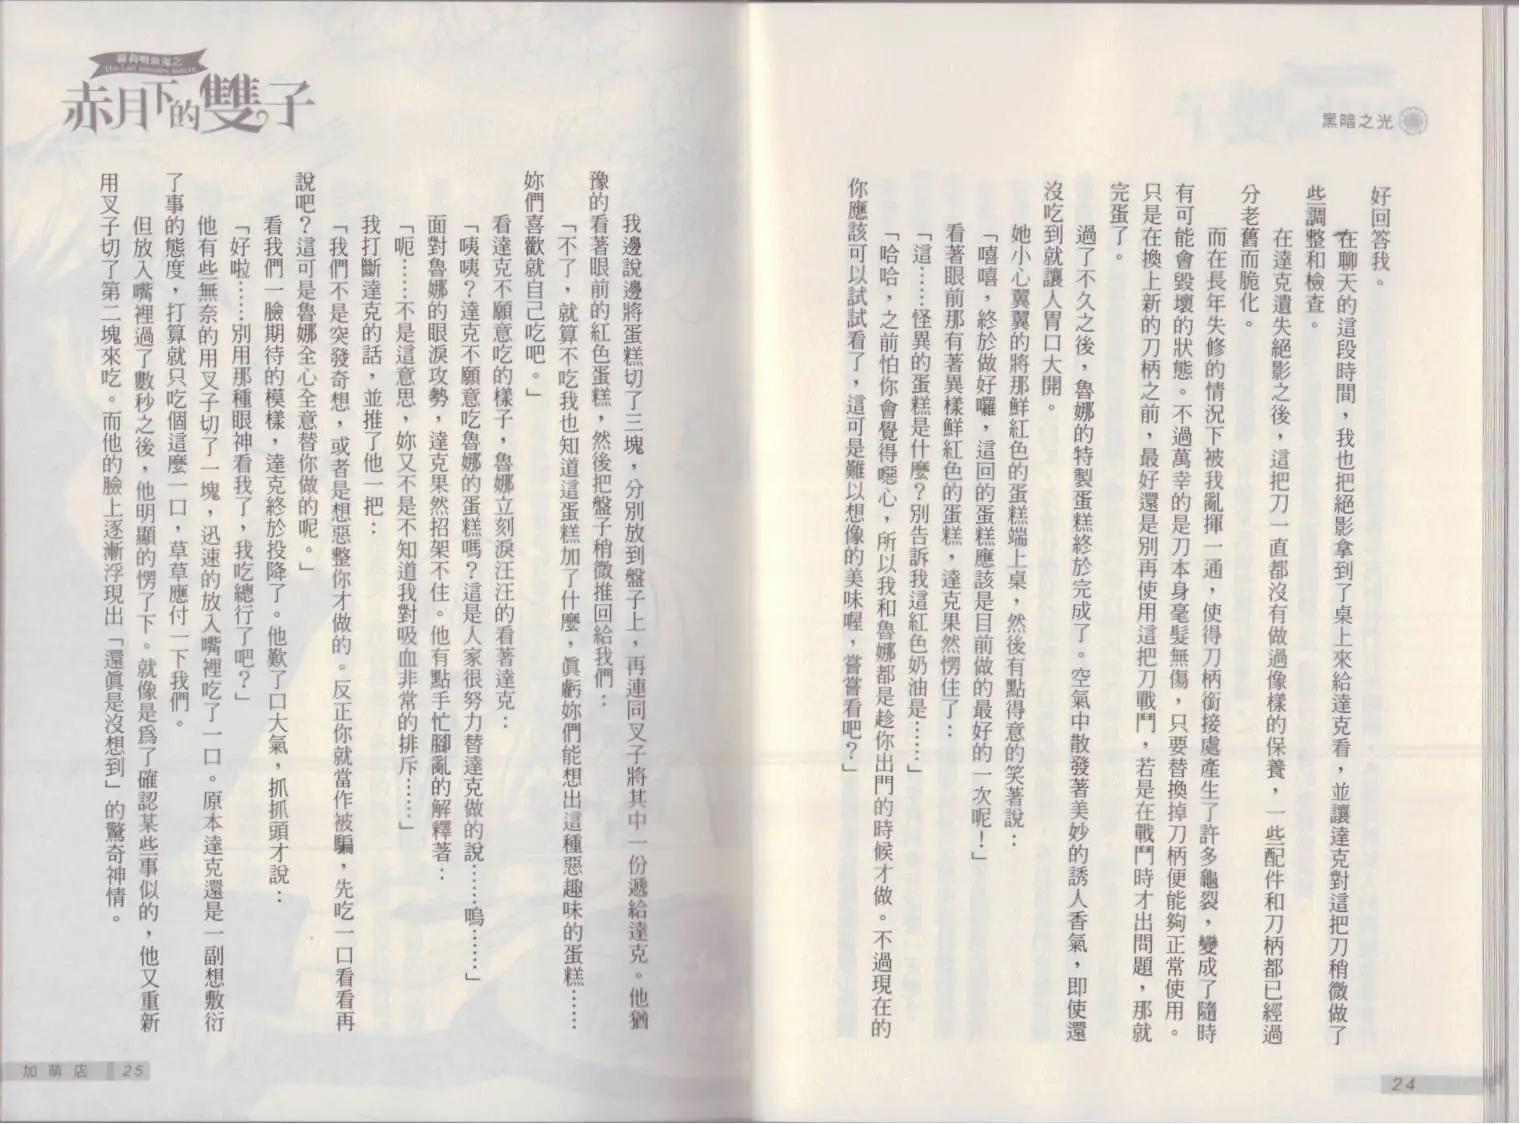 黑暗之光
好回答我。
在聊天的這段時間，我也把絕影拿到了桌上來給達克看，並讓達克對這把刀稍微做了
些調整和檢查。
在達克遺失絕影之後，這把刀一直都沒有做過像樣的保養，一些配件和刀柄都已經過
分老舊而脆化。
而在長年失修的情況下被我亂揮一通，使得刀柄銜接處產生了許多龜裂，變成了隨時
有可能會毀壞的狀態。不過萬幸的是刀本身毫髮無傷，只要替換掉刀柄便能夠正常使用。
只是在換上新的刀柄之前，最好還是別再使用這把刀戰鬥，若是在戰鬥時才出問題，那就
完蛋了。
過了不久之後，魯娜的特製蛋糕終於完成了。空氣中散發著美妙的誘人香氣，即使還
沒吃到就讓人胃口大開。
她小心翼翼的將那鮮紅色的蛋糕端上桌，然後有點得意的笑著說：
「嘻嘻，終於做好囉，這回的蛋糕應該是目前做的最好的一次呢！」
看著眼前那有著異樣鮮紅色的蛋糕，達克果然愣住了：
「這……怪異的蛋糕是什麼？別告訴我這紅色奶油是……」
「哈哈，之前怕你會覺得噁心，所以我和魯娜都是趁你出門的時候才做。不過現在的
你應該可以試試看了，這可是難以想像的美味喔，嘗嘗看吧？」
24
蘿莉吸血鬼之
赤月下的雙子
我邊說邊將蛋糕切了三塊，分別放到盤子上，再連同叉子將其中一份遞給達克。他猶
豫的看著眼前的紅色蛋糕，然後把盤子稍微推回給我們：
「不了，就算不吃我也知道這蛋糕加了什麼，真虧妳們能想出這種惡趣味的蛋糕……
妳們喜歡就自己吃吧。」
看達克不願意吃的樣子，魯娜立刻淚汪汪的看著達克：
「咦咦？達克不願意吃魯娜的蛋糕嗎？這是人家很努力替達克做的說……嗚……」
面對魯娜的眼淚攻勢，達克果然招架不住。他有點手忙腳亂的解釋著：
「呃……不是這意思，妳又不是不知道我對吸血非常的排斥……」
我打斷達克的話，並推了他一把：
「我們不是突發奇想，或者是想惡整你才做的。反正你就當作被騙，先吃一口看看再
說吧？這可是魯娜全心全意替你做的呢。」
看我們一臉期待的模樣，達克終於投降了。他歎了口大氣，抓抓頭才說：
「好啦……別用那種眼神看我了，我吃總行了吧？」
他有些無奈的用叉子切了一塊，迅速的放入嘴裡吃了一口。原本達克還是一副想敷衍
了事的態度，打算就只吃個這麼一口，草草應付一下我們。
但放入嘴裡過了數秒之後，他明顯的愣了下。就像是為了確認某些事似的，他又重新
用叉子切了第二塊來吃。而他的臉上逐漸浮現出「還真是沒想到」的驚奇神情。
加萌店 25